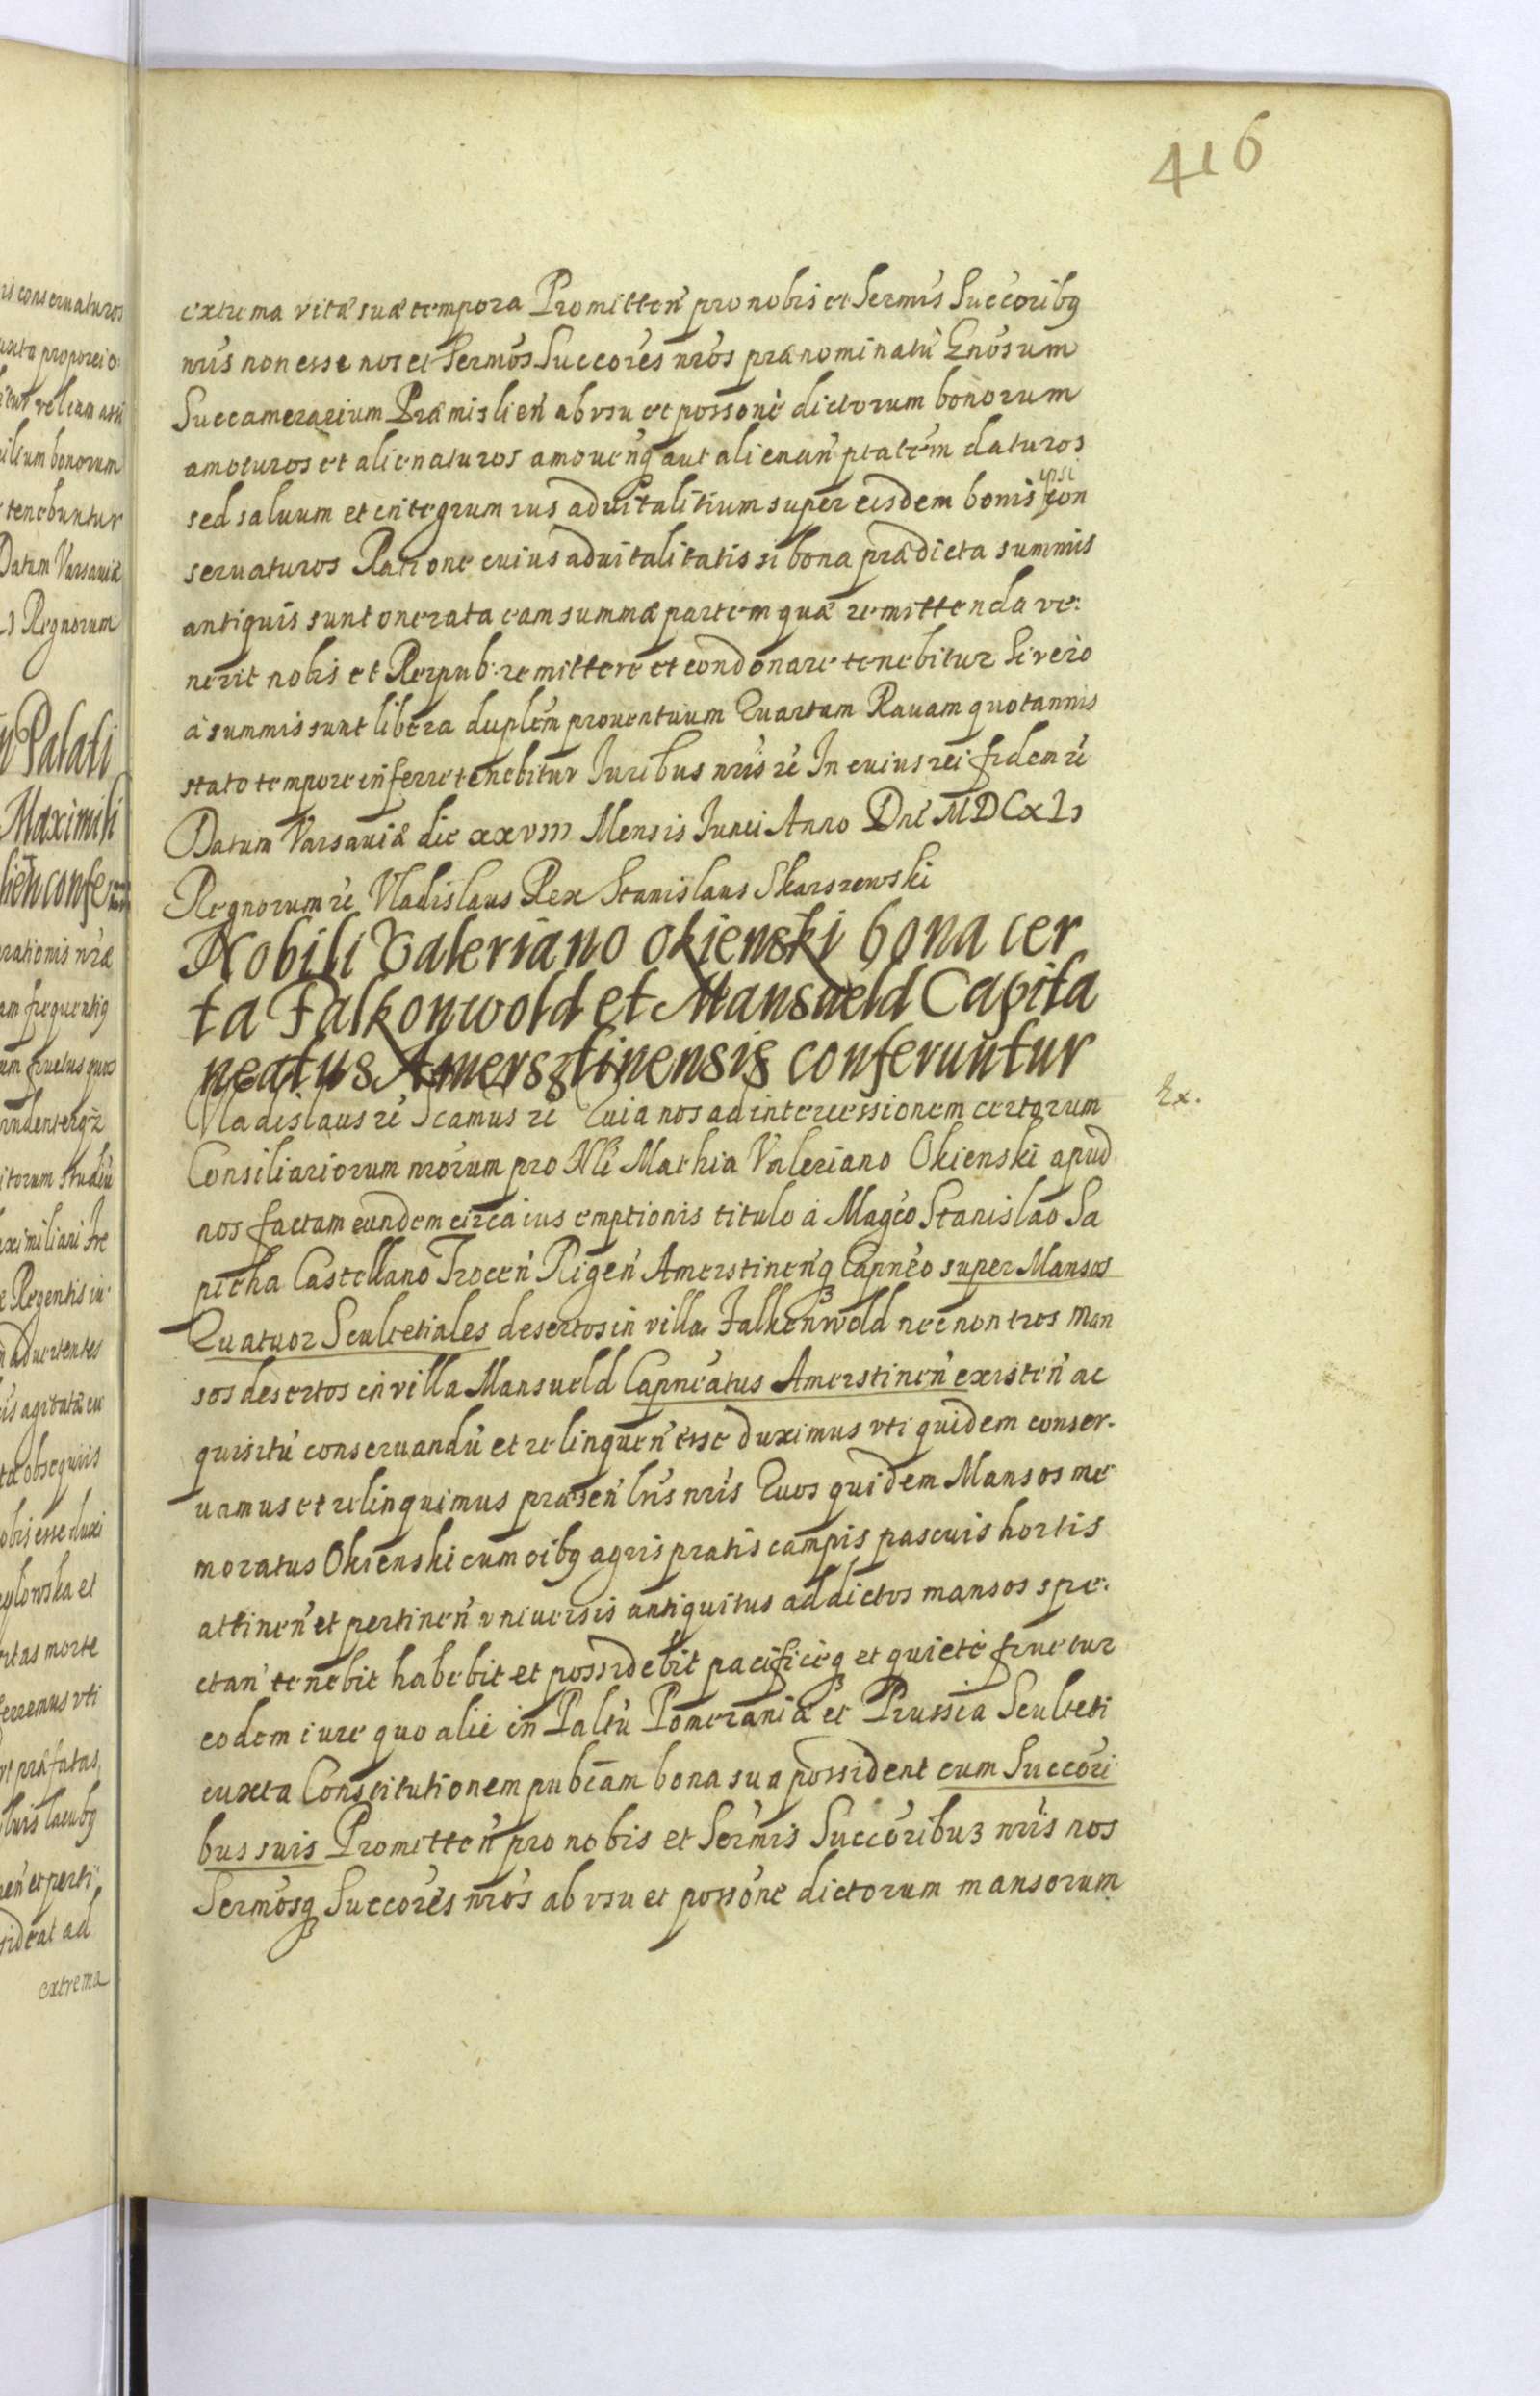 416
is conservaturos
uxta proporcio
itur vel cum atti
ilium bonorum
tenebuntur
Datum Varsaviæ
Regnorum
Palati
Maximili
lien̄ confe
rationis nr̄æ
am frequentiq
um fructus quos
itorum studiū
ximiliani Fre
e Regentis in
n advertentes
is agitatæ eu
tæ obsequiis
obis esse duxi
ylowska et
ritas morte
ferremus vti
præfatas
luis lacubq
nen̄ et perti
sideat ad
extrema
extrema vitæ suæ tempora Promitten̄ pro nobis et Sermīs Succoribq
nrīs non esse nos et Sermōs Succores nrōs prænominatū Gnōsum
Succamerarium Præmislien̄ ab vsu et possone dictorum bonorum
amoturos et alienaturos amovenq̄ aut alienan̄ ptatēm daturos
sed saluum et integrum ius aduitalitium super eisdem bonis ipsi con
seruaturos Ratione cuius aduitalitatis si bona prædicta summis
antiquis sunt onerata eam summæ partem quæ remittenda ve:
nerit nobis et Reipub: remittere et condonare tenebitur Si vero
à summis sunt libera duplēm prouentuum Quartam Rauam quotannis
stato tempore inferre tenebitur Iuribus nrīs rē In cuius rei fidem rē
Datum Varsauiæ die xxviii Mensis Iunii Anno Dnī MDCxLi
Regnorum rē Vladislaus Rex Stanislaus Skarszewski
Nobili Valeriano Okienski bona cer
ta Falkonwold et Mansueld Capita
neatus Amersztinensis conferuntur
Vladislaus rē Scamus rē Quia nos ad intercessionem certorum
Ex.
Consiliariorum nrōrum pro Nlī Mathia Valeriano Okienski apud
nos factam eundem circa ius emptionis titulo à Magco Stanislao Sa
pieha Castellano Trocen̄ Rigen̄ Amerstinenq̄ Capnēo super Mansos
Quatuor Scultetiales desertos in villa Falkenwold nec non tres man
sos desertos in villa Mansueld Capneātus Amerstinen̄ existen̄ ac
quisitū conseruandū et relinquen̄ esse duximus vti quidem conser-
uamus et relinquimus præsen̄ lrīs nrīs Quos quidem Mansos me
moratus Okienski cum oibq agris pratis campis pascuis hortis
attinen̄ et pertinen̄ vniuersis antiquitus ad dictos mansos spe-
ctan̄ tenebit habebit et possidebit pacificeq et quietè fruetur
eodem iure quo alii in Paltū Pomeraniæ et Prussia Sculteti
iuxta Constitutionem pubcam bona sua possident cum Succori
bus suis Promitten̄ pro nobis et Sermīs Succoribus nrīs nos
Sermosq Succores nrōs ab vsu et possone dictorum mansorum